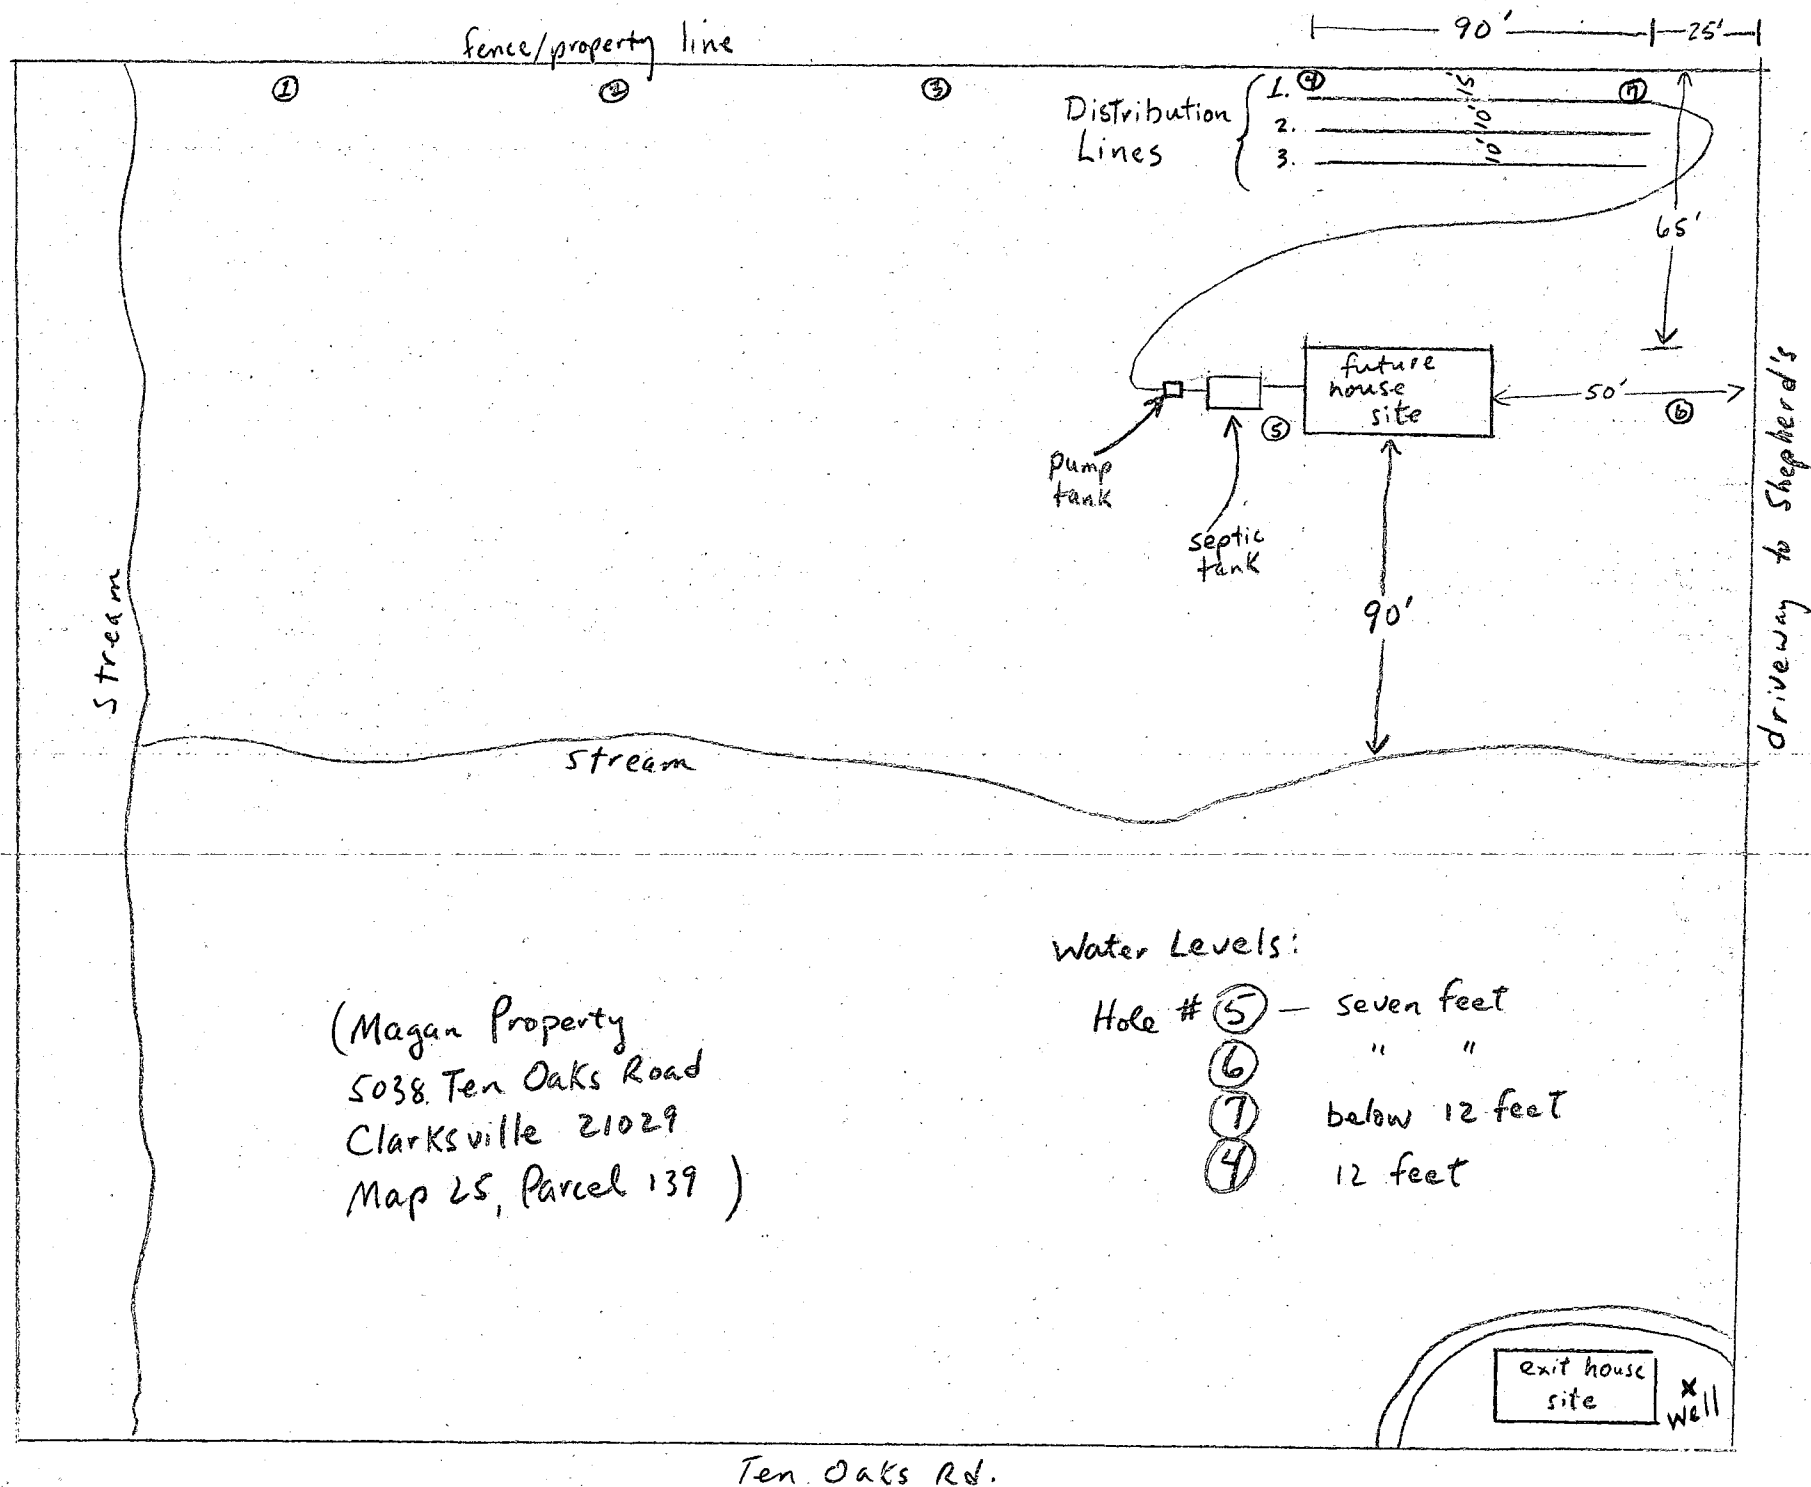 fence/property line
90'
25'
① ② ③ ④ ⑦
Distribution
Lines
1.
2.
3.
15'
10'
10'
65'
future
house
site
50'
⑥
⑤
pump
tank
septic
tank
90'
driveway to Shepherd's
Stream
stream
Water Levels:
Hole # ⑤ — seven feet
⑥ " "
⑦ below 12 feet
④ 12 feet
(Magan Property
5038 Ten Oaks Road
Clarksville 21029
Map 25, Parcel 139)
exit house
site
x
well
Ten Oaks Rd.